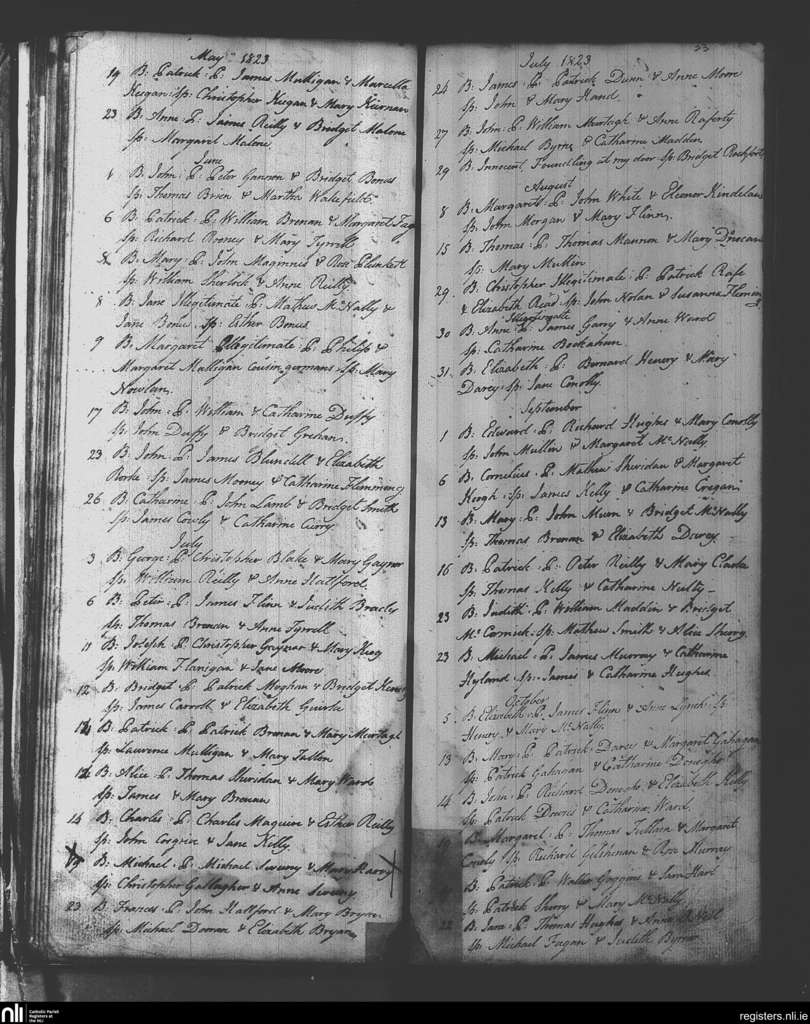 May 1823
19 B: Patrick: P: James Mulligan & Marcella
Keegan: Sp: Christopher Keegan & Mary Kiernan
23 B: Anne: P: James Reilly & Bridget Malone
Sp: Margaret Malone
June
1 B: John: P: Peter Gannon & Bridget Bonus
Sp: Thomas Brien & Martha Wakefield
6 B: Patrick: P: William Brenan & Margaret
Sp: Richard Rooney & Mary Tyrrell
8 B: Mary: P: John Maginnis & Rose Plunkett
Sp: William Sherlock & Anne Reilly
8 B: Jane Illegitimate: P: Mathew McNally &
Jane Bonus. Sp: Esther Bonus
9 B: Margaret Illegitimate: P: Philip &
Margaret Mulligan Cousin germans: Sp: Mary
Nowlan
17 B: John: P: William & Catharine Duffy
Sp: John Duffy & Bridget Grehan
23 B: John: P: James Blundell & Elizabeth
Rorke Sp: James Mooney & Catharine Flemming
26 B: Catharine: P: John Lamb & Bridget Smith
Sp: James Coody & Catharine Curry
July
3 B: George: P: Christopher Blake & Mary Gaynor
Sp: William Reilly & Anne Hallford
6 B: Peter: P: James Flinn & Judith Bracly
Sp: Thomas Brenan & Anne Tyrrell
11 B: Joseph: P: Christopher Gaynor & Mary King
Sp: William Flanigan & Jane Moore
12 B: Bridget: P: Patrick Moghan & Bridget
Sp: James Carroll & Elizabeth Guirke
B: Patrick: P: Patrick Brenan & Mary Murtagh
Sp: Laurence Mulligan & Mary Fallon
B: Alice: P: Thomas Sheridan & Mary Ward
Sp: James & Mary Brenan
14 B: Charles: P: Charles Maguire & Esther Reilly
Sp: John Cosgrin & Jane Kelly
19 B: Michael: P: Michael Sweeny & Mary
Sp: Christopher Gallagher & Anne Sweeny
23 B: Francis: P: John Hallford & Mary Bryan
Sp: Michael Doonan & Elizabeth Bryan
33
July 1823
24 B: James: P: Patrick Dunn & Anne Moore
Sp: John & Mary Hand
27 B: John: P: William Murtagh & Anne Raferty
Sp: Michael Byrne & Catharine Maddin
29 B: Innocent, Foundling at my door Sp: Bridget Rochfort
August
8 B: Margaret: P: John White & Eleanor Kindelan
Sp: John Morgan & Mary Flinn
15 B: Thomas: P: Thomas Mannon & Mary Duncan
Sp: Mary Mullen
29 B: Christopher Illegitimate: P: Patrick Rafe
& Elizabeth Read: Sp: John Nolan & Susanna Fleming
Illegitimate
30 B: Anne: P: James Garry & Anne Ward
Sp: Catharine
31 B: Elizabeth: P: Bernard Henery & Mary
Darcy: Sp: Jane Conolly
September
1 B: Edward: P: Richard Hughes & Mary Conolly
Sp: John Mullen & Margaret McNally
6 B: Cornelius: P: Mathew Sheridan & Margaret
Keogh: Sp: James Kelly & Catharine Cregan
13 B: Mary: P: John Munn & Bridget McNally
Sp: Thomas Brenan & Elizabeth Darcy
16 B: Patrick: P: Peter Reilly & Mary Clarke
Sp: Thomas Kelly & Catharine Nulty
23 B: Judith: P: William Maddin & Bridget
McCormick: Sp: Mathew Smith & Alice Sherry
23 B: Michael: P: James Murray & Catharine
Hyland Sp: James & Catharine Hughes
October
5 B: Elizabeth: P: James Flynn & Anne Lynch: Sp
Henery & Mary McNally
13 B: Mary: P: Patrick Darcy & Margaret Gahagan
Sp: Patrick Gahagan & Catharine Donegho
14 B: John: P: Richard Donegho & Elizabeth Kelly
Sp: Patrick Downs & Catharine Ward
B: Margaret: P: Thomas Fullam & Margaret
Sp: Richard Gilshinan & Rose Murray
B: Patrick: P: Walter Goggins & Sara Hart
Sp: Patrick Sherry & Mary McNally
22 B: Sara: P: Thomas Hughes & Anne
Sp: Michael Fagan & Judith Byrne
nli
Catholic Parish
Registers at
the NLI
registers.nli.ie